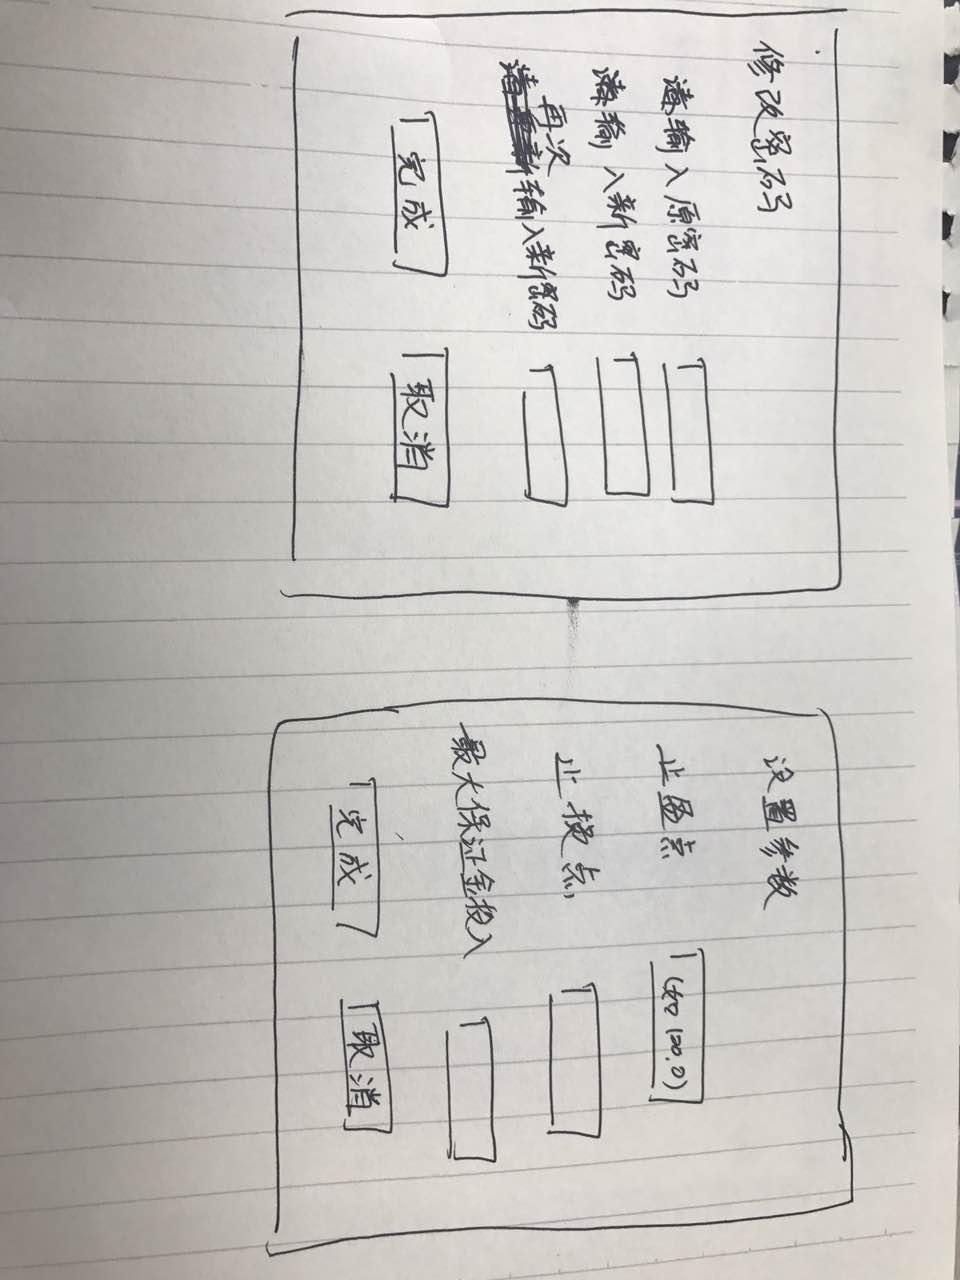 修改密码
请输入原密码
请输入新密码
再次
输入新密码
完成 取消
设置参数
止盈点 (如120.0)
止损点
最大保证金投入
完成 取消